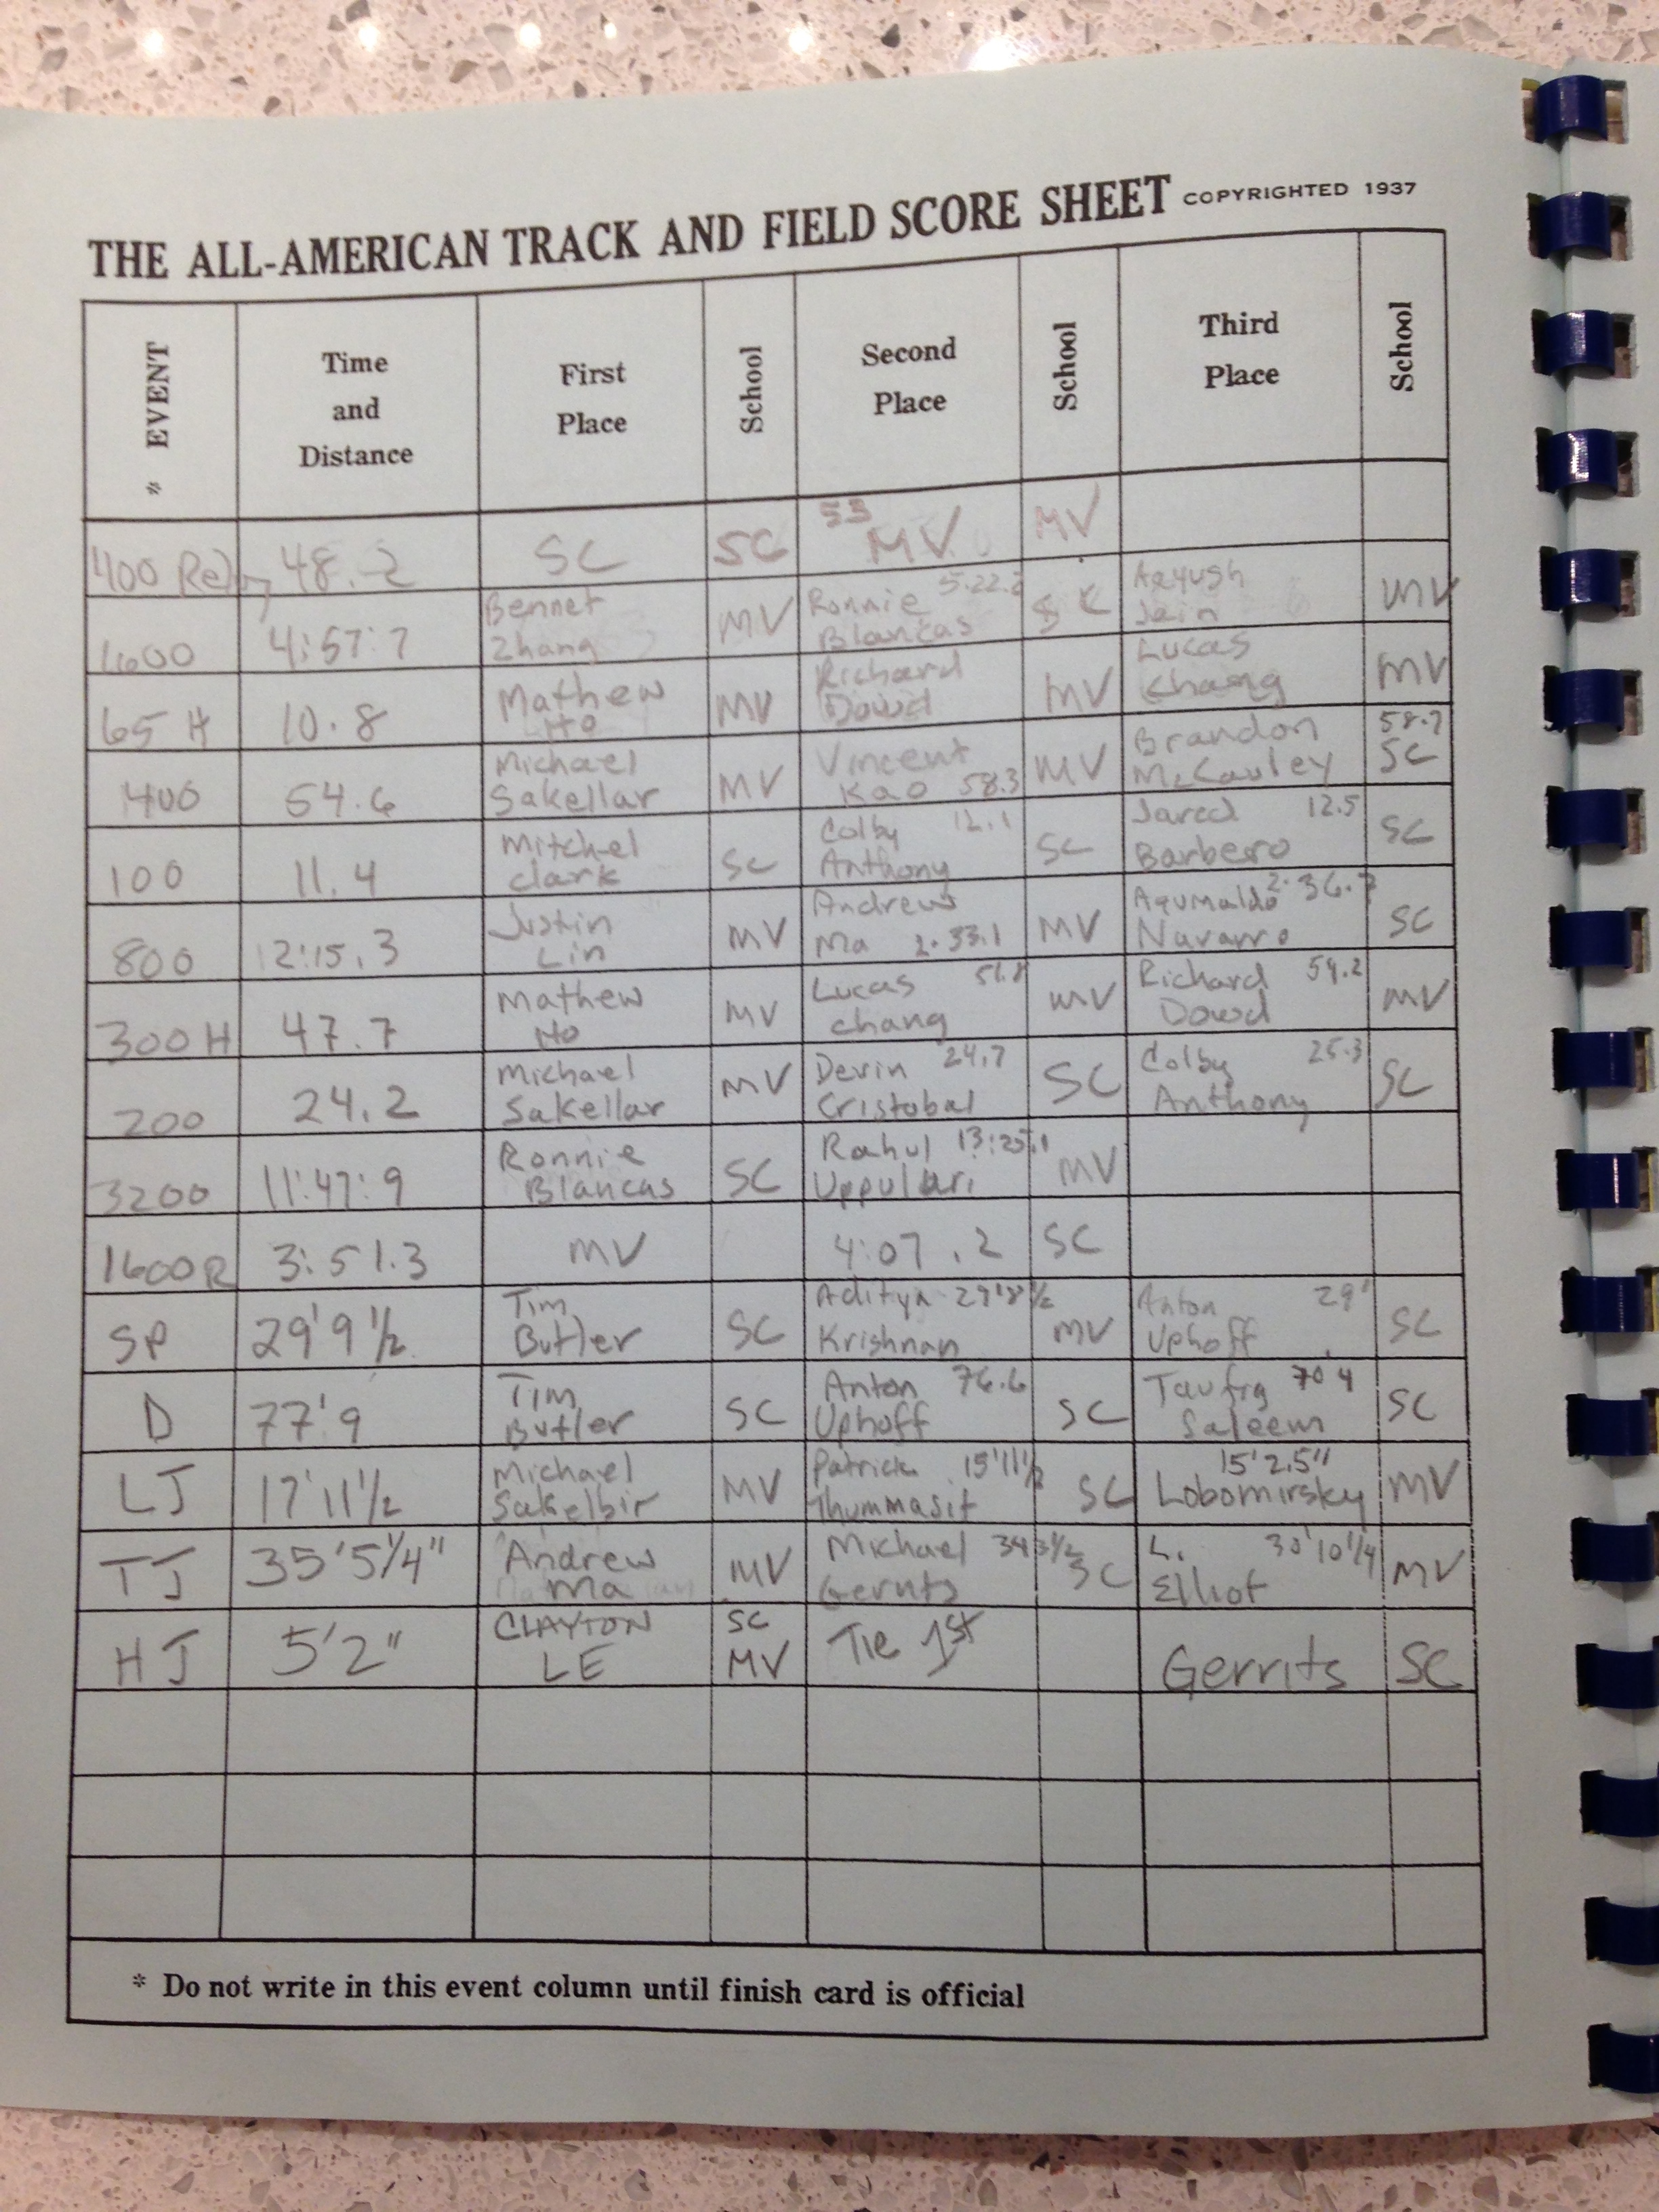 THE ALL-AMERICAN TRACK AND FIELD SCORE SHEET COPYRIGHTED 1937
* EVENT
Time and Distance
First Place
School
Second Place
School
Third Place
School
400 Relay 48.2 SC SC 53 MV MV
1600 4:57:7 Bennet Zhang MV Ronnie Blancas 5:22.2 SC Aayush Jain MV
65 H 10.8 Mathew Ho MV Richard Dowd MV Lucas Chang MV
400 54.6 Michael Sakellar MV Vincent Kao 58.3 MV Brandon McCauley 58.7 SC
100 11.4 Mitchel Clark SC Colby Anthony 12.1 SC Jared Barbero 12.5 SC
800 2:15.3 Justin Lin MV Andrew Ma 2:33.1 MV Navarro 2:36.7 SC
300 H 47.7 Mathew Ho MV Lucas Chang 51.8 MV Richard Dowd 54.2 MV
200 24.2 Michael Sakellar MV Devin Cristobal 24.7 SC Colby Anthony 25.3 SC
3200 11:47:9 Ronnie Blancas SC Rahul 13:25.1 MV
1600R 3:51.3 MV 4:07.2 SC
SP 29'9 1/2 Tim Butler SC Aditya Krishnan 29'8 1/2 MV Anton Uphoff 29' SC
D 77'9 Tim Butler SC Anton Uphoff 76.6 SC Saleem 70 4 SC
LJ 17'11 1/2 Michael MV Patrick Thummasit 15'11 1/2 SC 15'2.5" Lobomirsky MV
TJ 35'5 1/4" Andrew Ma MV Michael 34 3 1/2 SC L. Elliot 30'10 1/4 MV
HJ 5'2" CLAYTON LE SC MV Tie 1st Gerrits SC
* Do not write in this event column until finish card is official